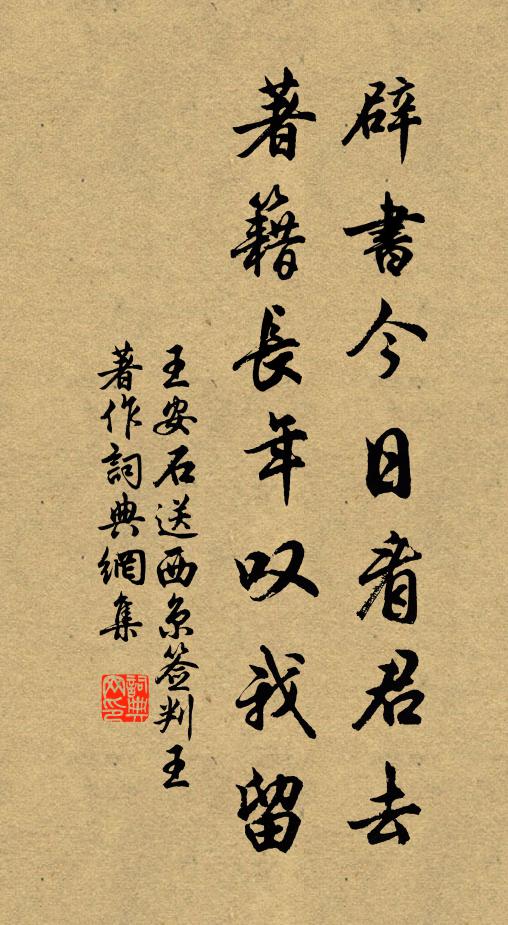 辟書今日看君去
著籍長年叹我留
王安石送西京签判王
著作詞典網集
詞典